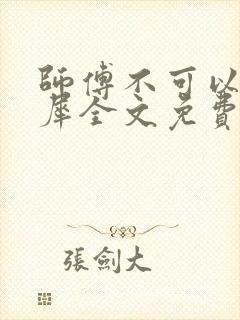 師傅不可以
犀全文免費
張劍大